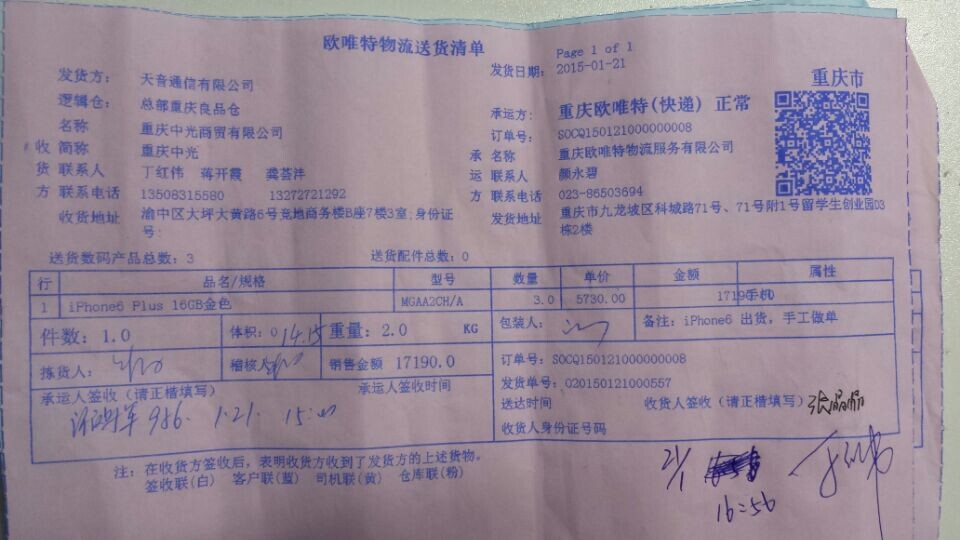 欧唯特物流送货清单
Page 1 of 1
发货日期: 2015-01-21
重庆市
发货方: 天音通信有限公司
逻辑仓: 总部重庆良品仓
承运方: 重庆欧唯特(快递) 正常
订单号: SOCQ150121000000008
收货方
名称 重庆中光商贸有限公司
简称 重庆中光
联系人 丁红伟 蒋开霞 龚荟沣
联系电话 13508315580 13272721292
收货地址 渝中区大坪大黄路6号竞地商务楼B座7楼3室;身份证号:
承运方
名称 重庆欧唯特物流服务有限公司
联系人 颜永碧
联系电话 023-86503694
发货地址 重庆市九龙坡区科城路71号、71号附1号留学生创业园D3栋2楼
送货数码产品总数: 3 送货配件总数: 0
行 品名/规格 型号 数量 单价 金额 属性
1 iPhone6 Plus 16GB金色 MGAA2CH/A 3.0 5730.00 17190 手机
件数: 1.0 体积: 0 重量: 2.0 KG 包装人: 备注: iPhone6 出货, 手工做单
拣货人: 稽核人 销售金额 17190.0
订单号: SOCQ150121000000008
发货单号: 020150121000557
承运人签收 (请正楷填写) 承运人签收时间
986. 1.21.
送达时间 收货人签收 (请正楷填写)
收货人身份证号码
21/1
16:56
注: 在收货方签收后, 表明收货方收到了发货方的上述货物。
签收联(白) 客户联(蓝) 司机联(黄) 仓库联(粉)